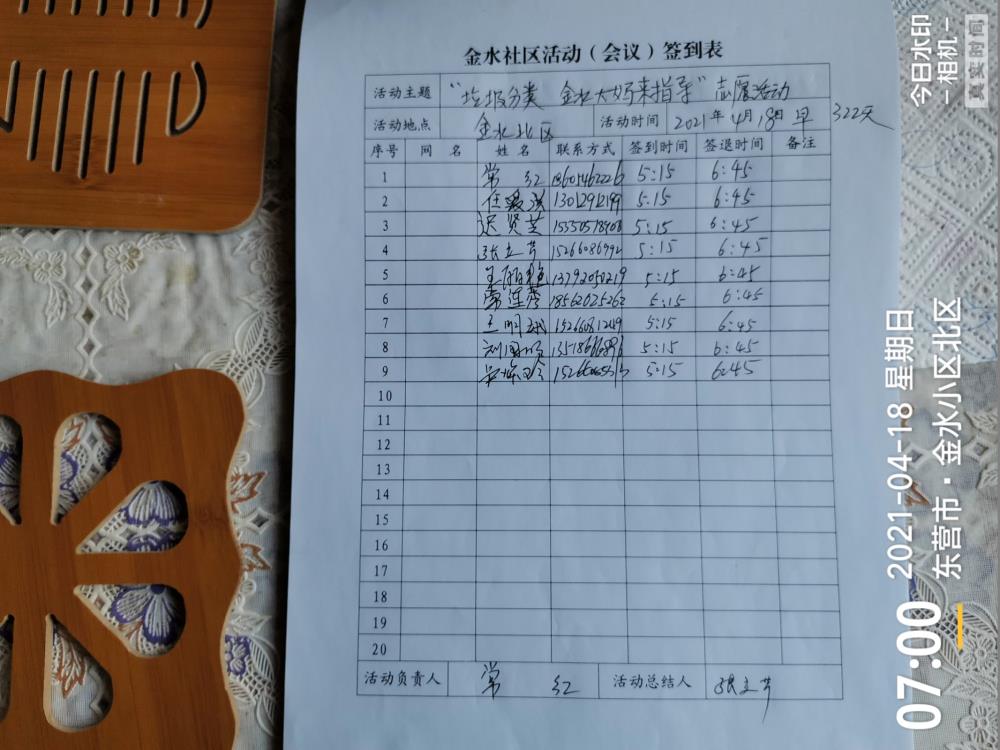 金水社区活动（会议）签到表
活动主题 "垃圾分类 金水大妈来指导"志愿活动
活动地点 金水北区 活动时间 2021年4月18日 早 322天
序号 网 名 姓 名 联系方式 签到时间 签退时间 备注
1 常 红 5:15 6:45
2 13012912199 5:15 6:45
3 迟贤芝 5:15 6:45
4 张立芹 15266086992 5:15 6:45
5 13792052219 5:15 6:45
6 常连营 18562025262 5:15 6:45
7 王明 15266081249 5:15 6:45
8 5:15 6:45
9 5:15 6:45
10
11
12
13
14
15
16
17
18
19
20
活动负责人 常 红 活动总结人 张立芹
今日水印
-相机-
真实时间
07:00 2021-04-18 星期日
东营市·金水小区北区